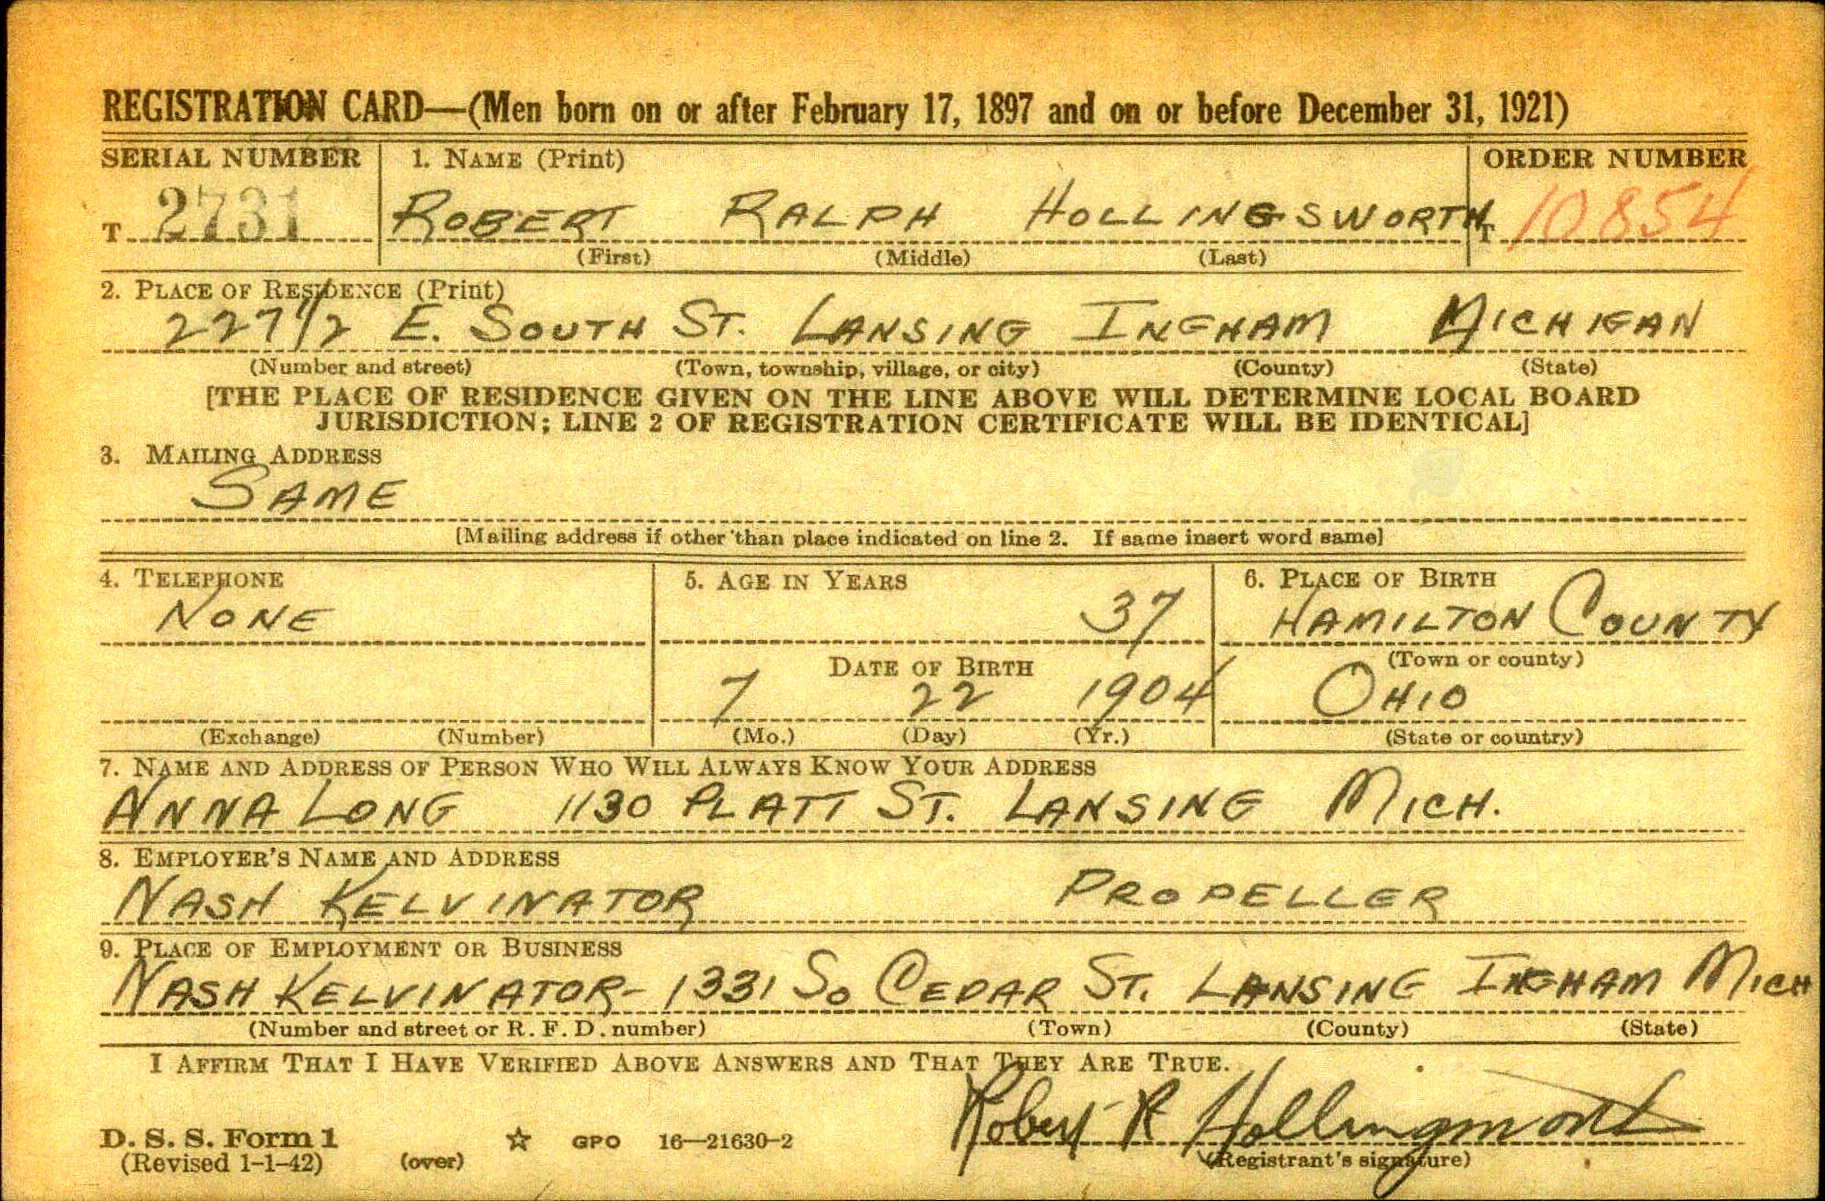 REGISTRATION CARD—(Men born on or after February 17, 1897 and on or before December 31, 1921)
SERIAL NUMBER 1. NAME (Print) ORDER NUMBER
T 2731 ROBERT RALPH HOLLINGSWORTH T 10854
(First) (Middle) (Last)
2. PLACE OF RESIDENCE (Print)
227 1/2 E. SOUTH ST. LANSING INGHAM MICHIGAN
(Number and street) (Town, township, village, or city) (County) (State)
[THE PLACE OF RESIDENCE GIVEN ON THE LINE ABOVE WILL DETERMINE LOCAL BOARD
JURISDICTION; LINE 2 OF REGISTRATION CERTIFICATE WILL BE IDENTICAL]
3. MAILING ADDRESS
SAME
[Mailing address if other than place indicated on line 2. If same insert word same]
4. TELEPHONE 5. AGE IN YEARS 6. PLACE OF BIRTH
NONE 37 HAMILTON COUNTY
DATE OF BIRTH (Town or county)
7 22 1904 OHIO
(Exchange) (Number) (Mo.) (Day) (Yr.) (State or country)
7. NAME AND ADDRESS OF PERSON WHO WILL ALWAYS KNOW YOUR ADDRESS
ANNA LONG 1130 PLATT ST. LANSING MICH.
8. EMPLOYER'S NAME AND ADDRESS
NASH KELVINATOR PROPELLER
9. PLACE OF EMPLOYMENT OR BUSINESS
NASH KELVINATOR- 1331 So CEDAR ST. LANSING INGHAM MICH
(Number and street or R. F. D. number) (Town) (County) (State)
I AFFIRM THAT I HAVE VERIFIED ABOVE ANSWERS AND THAT THEY ARE TRUE.
Robert R Hollingsworth
D. S. S. Form 1
(Revised 1-1-42) (over) ☆ GPO 16—21630-2 (Registrant's signature)